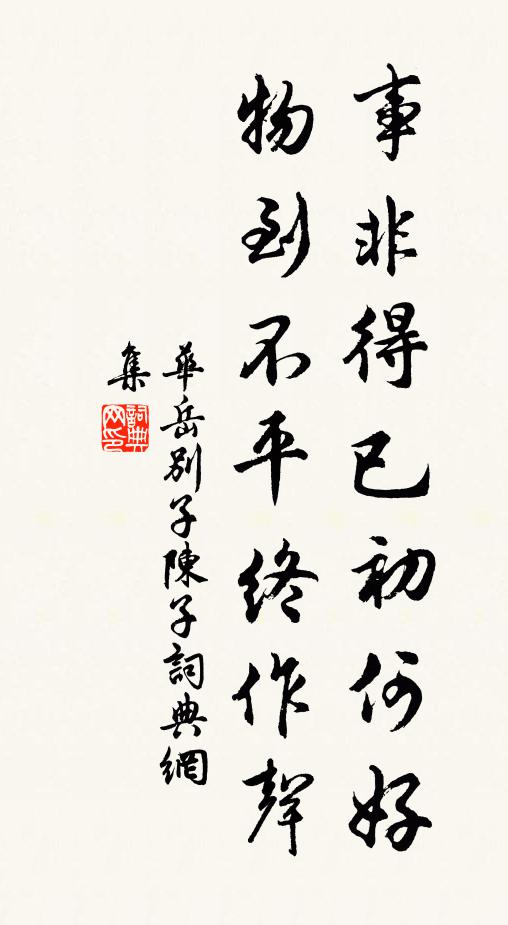 事非得已初何好
物到不平終作聲
華岳別子陳子詞典網
集
詞典
网印